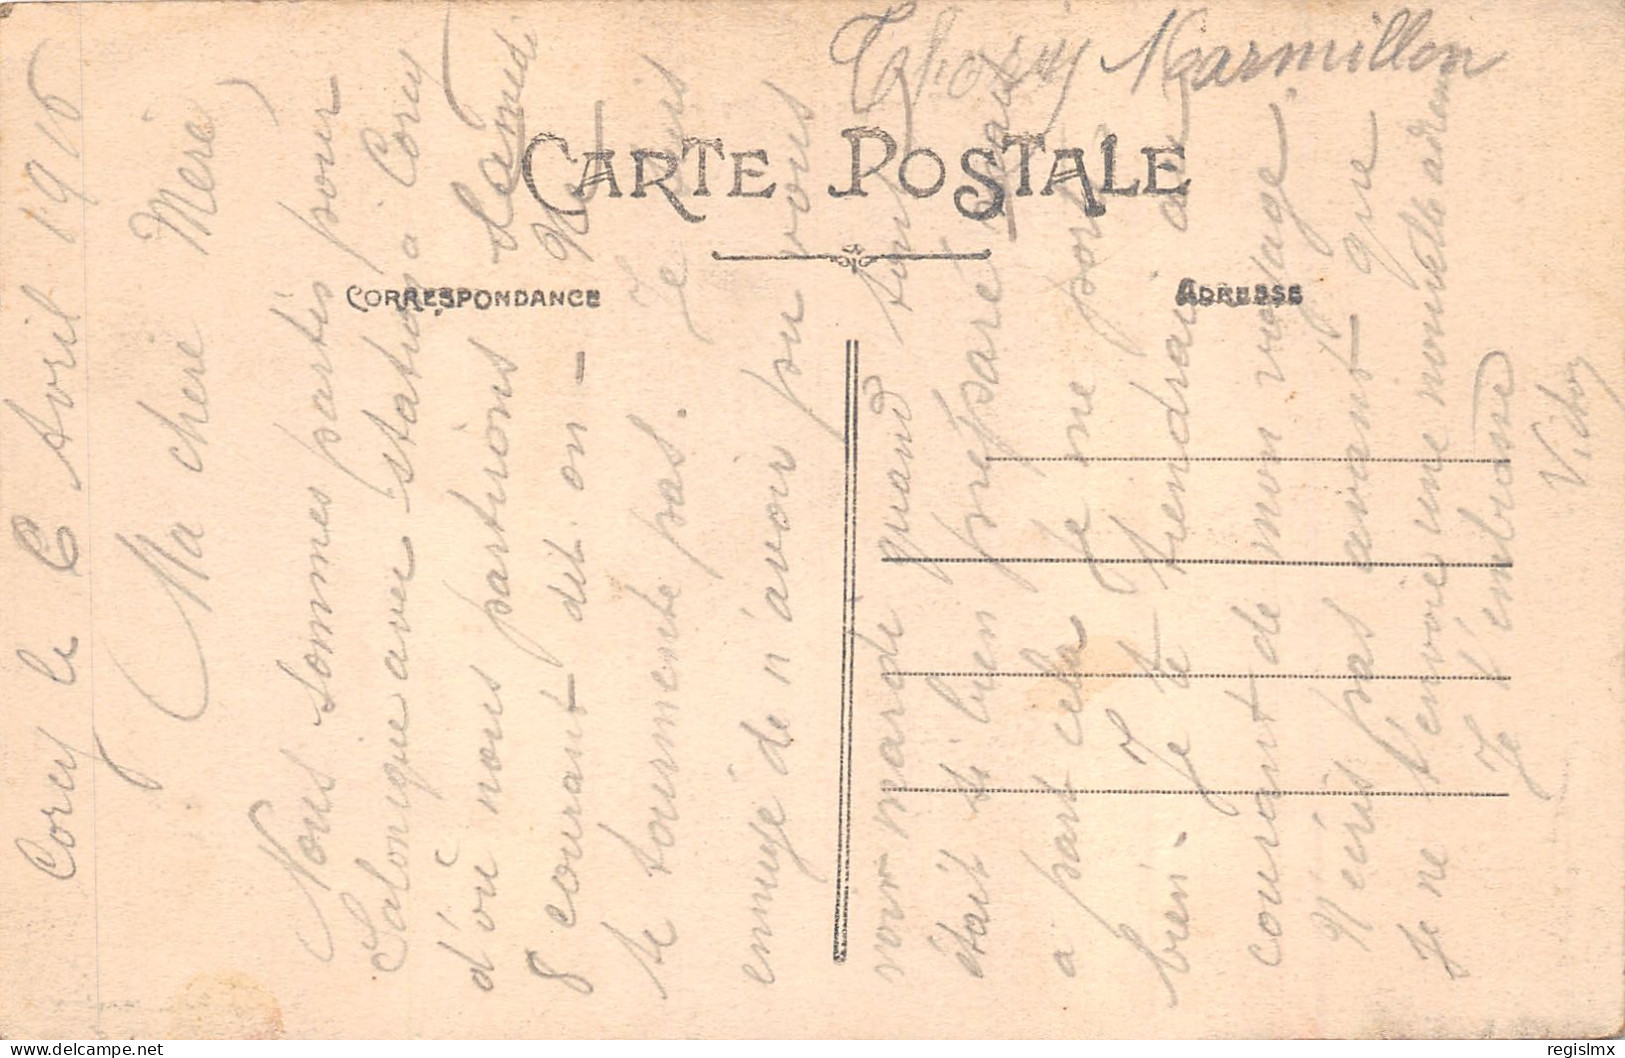 Thorin Marmillon
CARTE POSTALE
CORRESPONDANCE
ADRESSE
Corcy le 6 Avril 1916
Ma chère Mère
Nous sommes partis pour
Salonique avec stations a Corcy
d'où nous partirons Samedi
8 courant dit on - Ne
te tourmente pas. Je suis
ennuyé de n'avoir pu vous
voir mardi quand tout
était si bien préparé mais
a part cela je me porte
bien - Je te tiendrai au
courant de mon voyage.
N'écris pas avant que
Je ne t'envoie une nouvelle adresse
Je t'embrasse
Victor
regislmx
delcampe.net